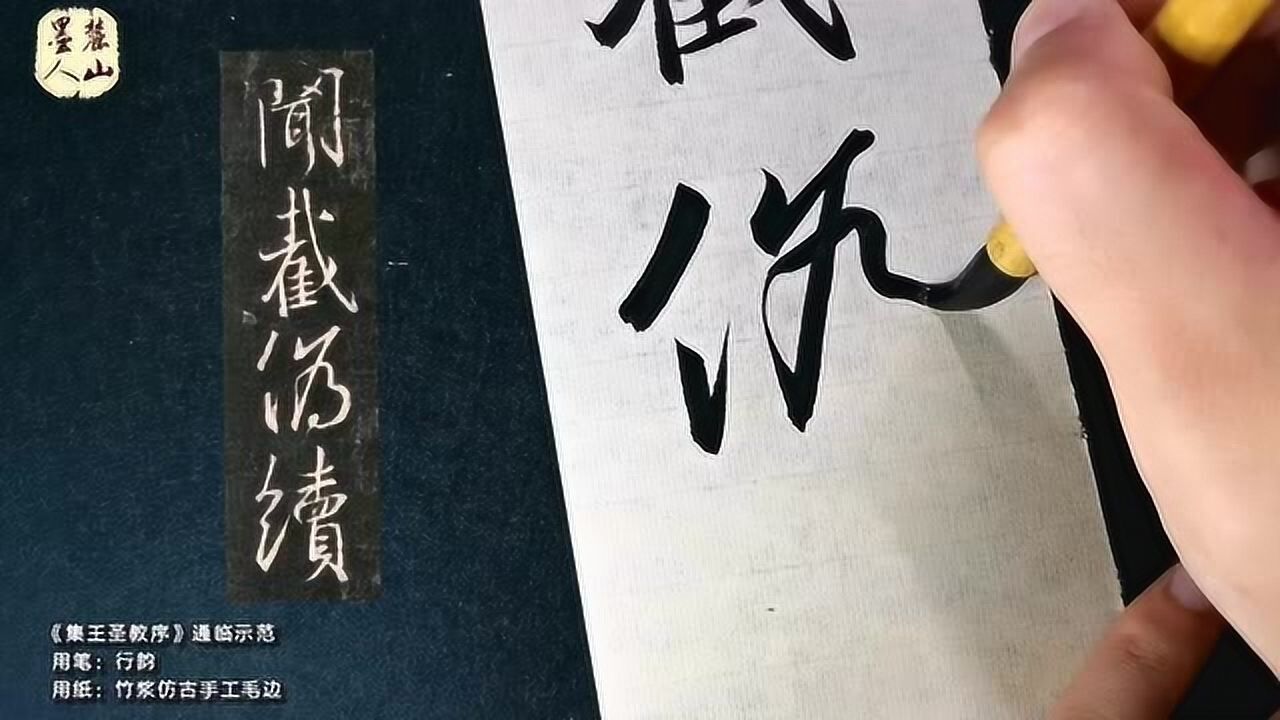 麓山
墨人
聞截偽續
截
《集王圣教序》通临示范
用笔：行韵
用纸：竹浆仿古手工毛边